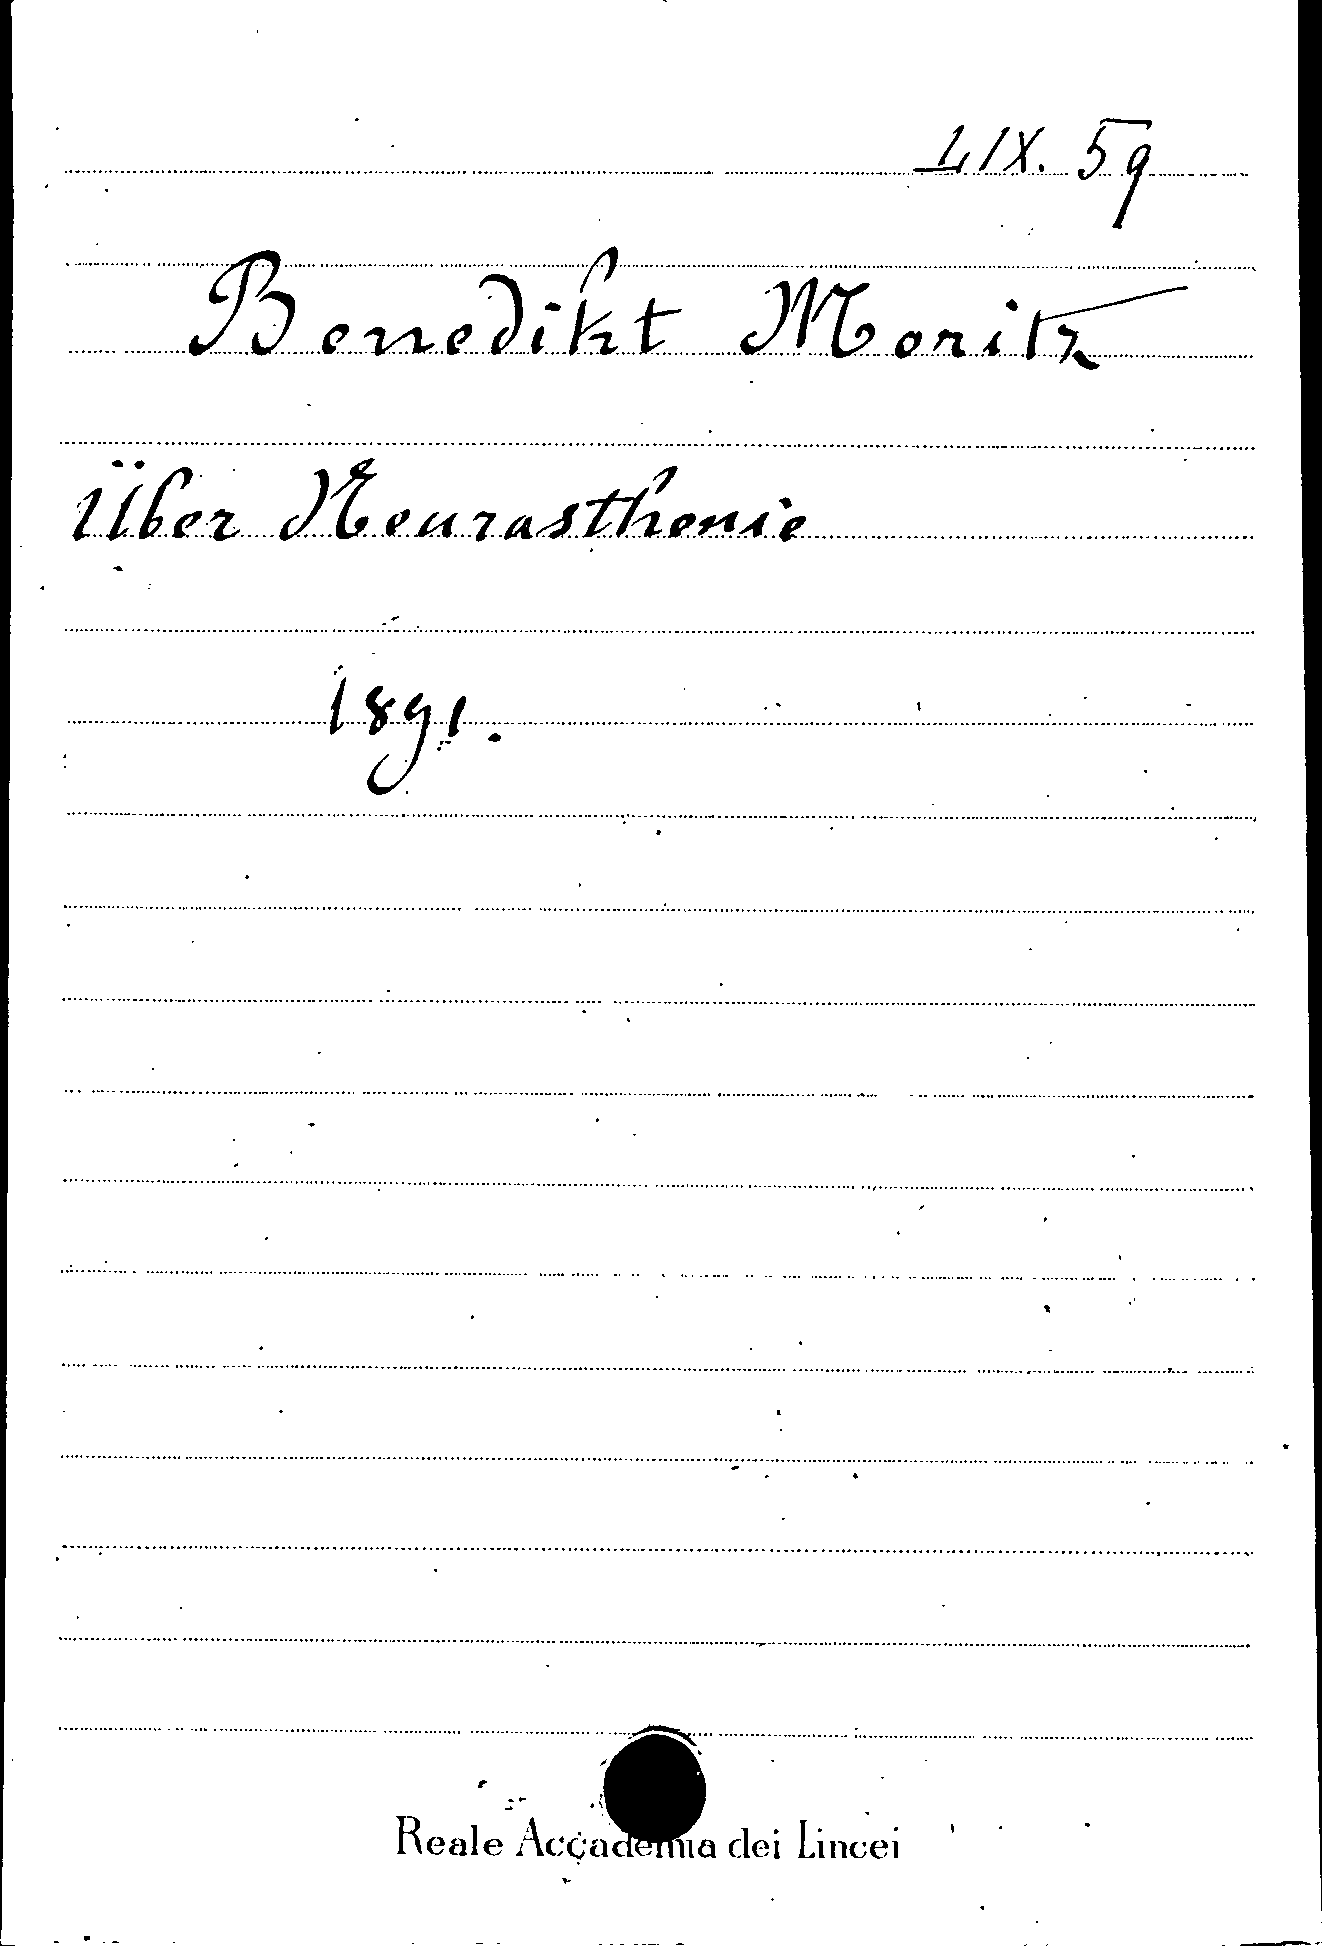 LIX. 59
Benedikt Moritz
Über Neurasthenie
1891.
Reale Accademia dei Lincei